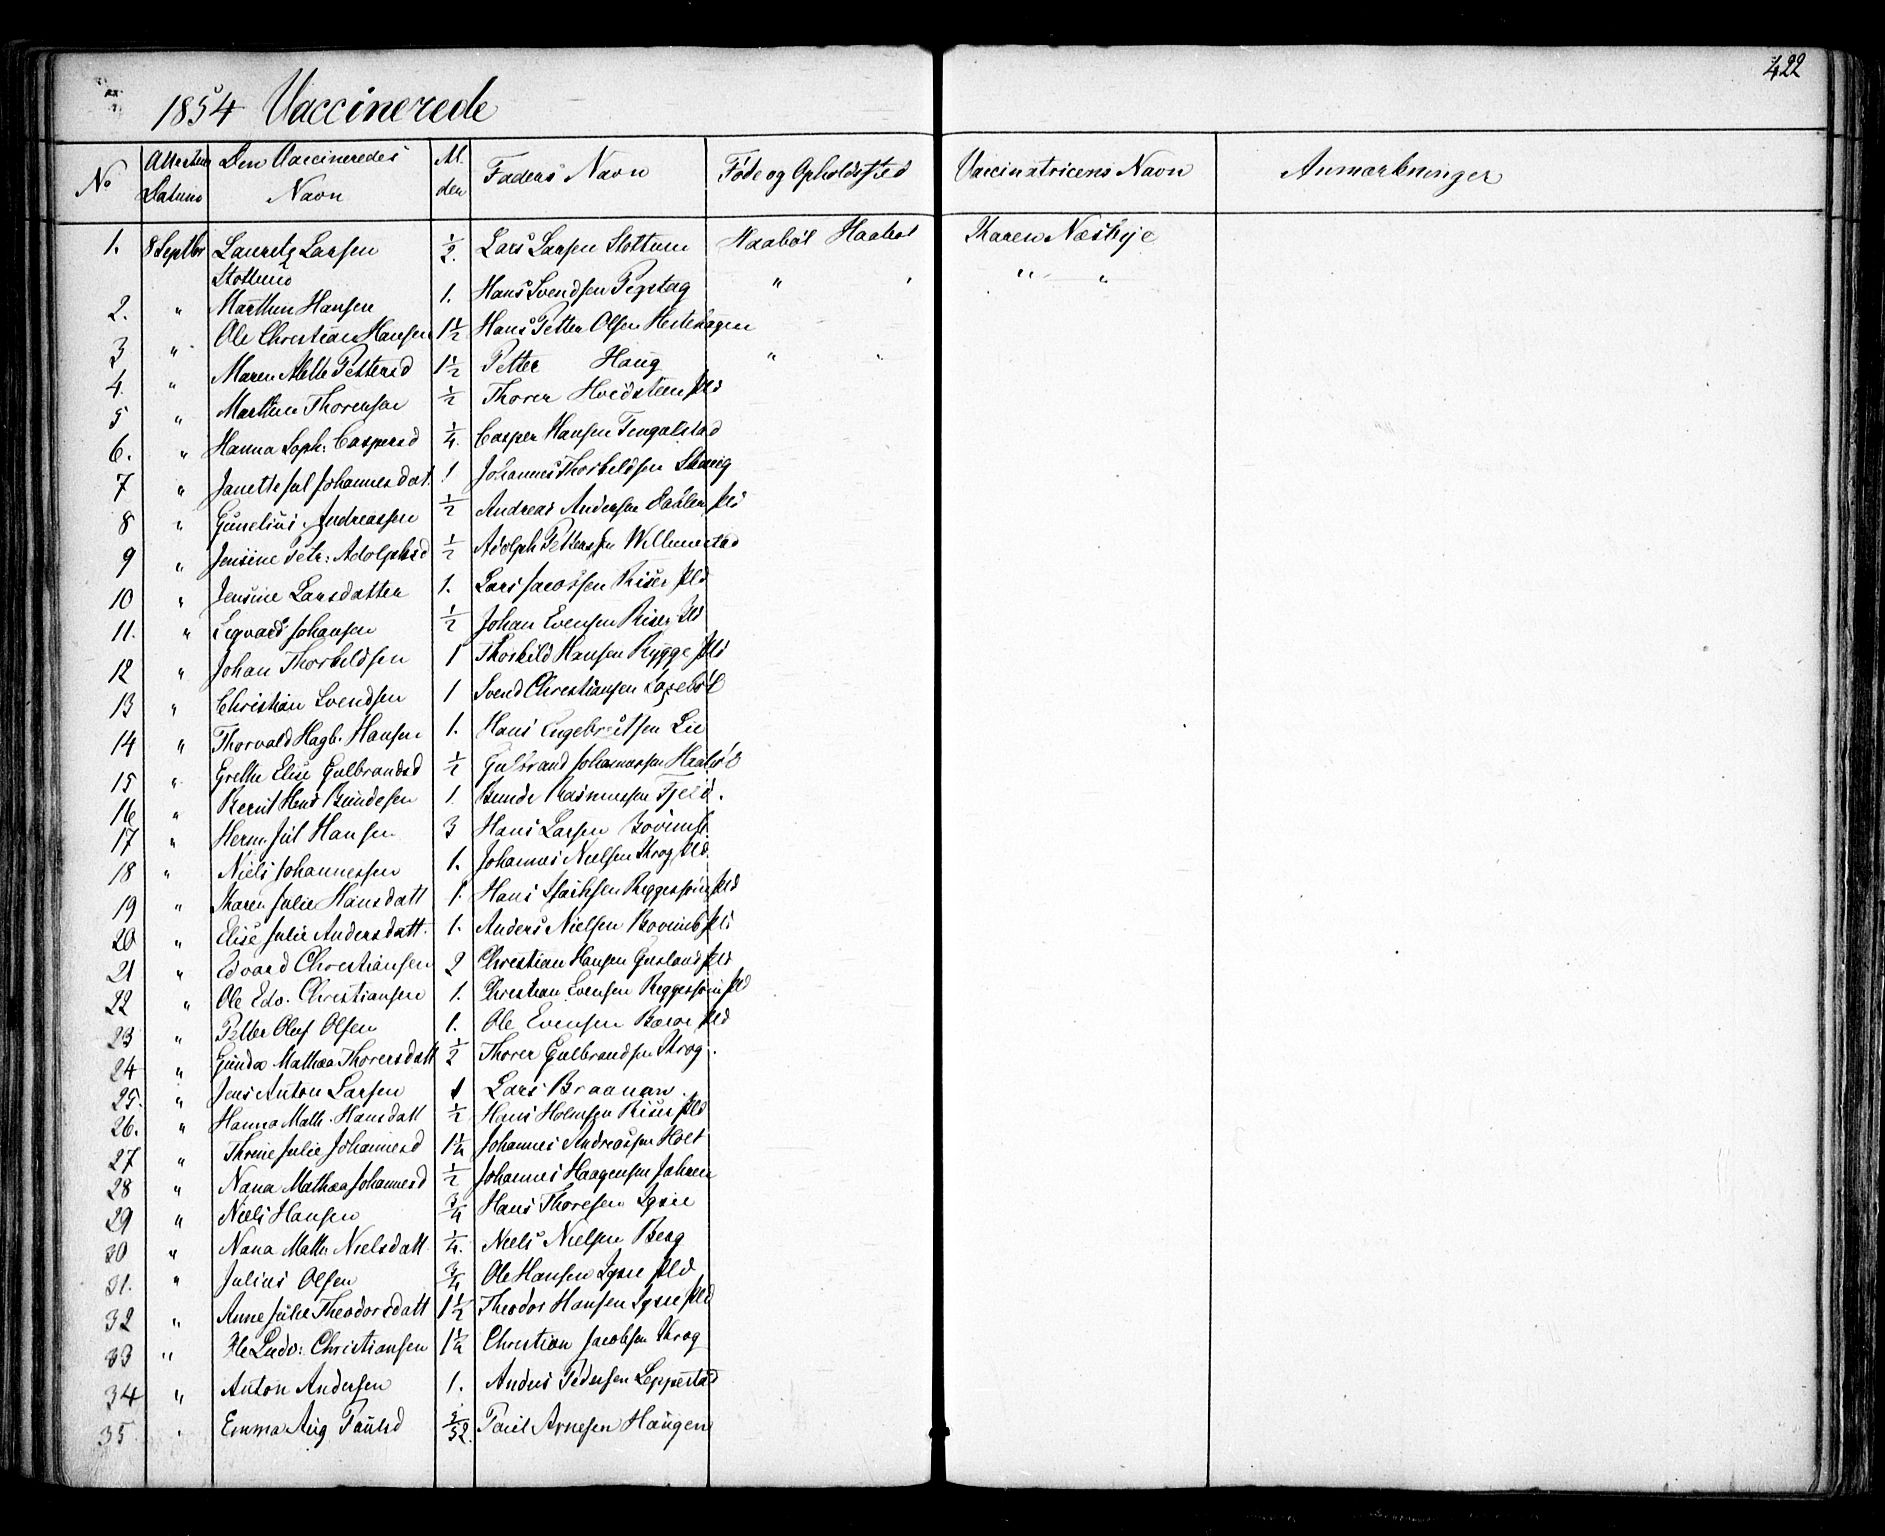 422
1854 Vaccinerede
No Attestens Datum Den Vaccineredes Navn Al. der Faders Navn Føde og Opholdssted Vaccinatricens Navn Anmærkninger
1. 8 Septbr Lauritz Larsen 1/2. Lars Larsen Stottum Haabøl Haabøl Karen Næskje
Stottum
2. " Marthin Hansen 1. Hans Svendsen " " " "
3 " Ole Christian Hansen 1 1/2 Hans Petter Olsen Hestehagen
4. " Maren Pettersd 1 1/2 Petter Haug " "
5 " Marthin Thorensen 1/2 Thorer Hvidsteen Pld
6. " Hanna Soph: Caspersd 1/4. Casper Hansen
7 " Janette Jul Johannesdat. 1 Johannes Thorkeldsen
8 " Andreassen 1/2 Andreas Andersen Pld
9 " Jensine Petr: Adolphsd 1/2 Adolph Pettersen
10 " Jensine Larsdatter 1. Lars Jacobsen Riser Pld
11. " Segvard Johansen 1/2 Johan Evensen Riser Pld
12 " Johan Thorkeldsen 1 Thorkild Hansen Rygge Pld
13 " Christian Svendsen 1 Svend Christiansen
14 " Thorvald Hagb. Hansen 1. Hans Engebretsen Lie
15 " Grethe Elise Gulbrandsd 1/2 Gulbrand Johannessen Haabøl
16 " Bernt Hans Bundesen 1. Bunde Rasmussen Fjeld.
17 " Herm. Jul Hansen 3 Hans Larsen
18 " Niels Johannessen 1. Johannes Nielsen Krog Pld.
19 " Karen Julie Hansdatt 1. Hans Pld
20 " Elise Julie Andersdatt. 1. Anders Nielsen Pld
21 " Edvard Christiansen 2 Christian Hansen Pld
22 " Ole Edv. Christiansen 1. Christian Evensen Pld
23 " Petter Oluf Olsen 1. Ole Evensen Pld
24 " Gunda Mathea Thorersdatt 1/2 Thorer Gulbrandsen Krog.
25. " Jens Anton Larsen 1 Lars Braanan.
26. " Hanna Math. Hansdatt 1/2 Hans Holmsen Riser Pld
27 " Thrine Julie Johannesd 1 1/4 Johannes Andreassen Holt
28 " Nana Mathea Johannesd 1/2 Johannes Haagensen Jahren
29 " Niels Hansen 3/4 Hans Thoresen
30 " Nana Math: Nielsdatt. 1/4. Niels Nielsen Berg
31. " Julius Olsen 3/4 Ole Hansen Pld
32 " Anne Julie Theodorsdatt 1 1/2 Theodor Hansen Pld
33 " Ole Ludv: Christiansen 1 1/4 Christian Jacobsen Krog
34 " Anton Andersen 1. Anders Pedersen Leppestad
35 " Emma Aug Paulsd /52. Paul Arnesen Haugen